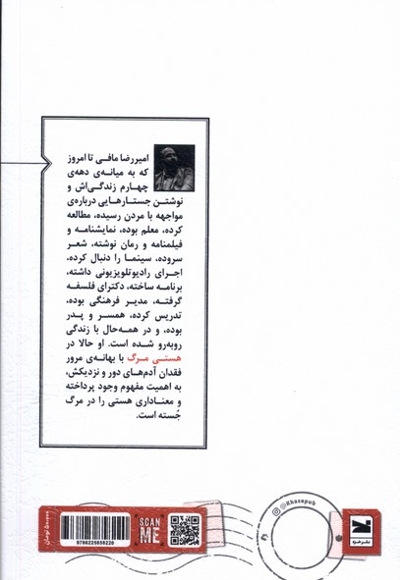 امیررضا مافی تا امروز
که به میانه‌ی دهه‌ی
چهارم زندگی‌اش و
نوشتن جستارهایی درباره‌ی
مواجهه با مردن رسیده، مطالعه
کرده، معلم بوده، نمایشنامه و
فیلمنامه و رمان نوشته، شعر
سروده، سینما را دنبال کرده،
اجرای رادیوتلویزیونی داشته،
برنامه ساخته، دکترای فلسفه
گرفته، مدیر فرهنگی بوده،
تدریس کرده، همسر و پدر
بوده، و در همه‌حال با زندگی
روبه‌رو شده است. او حالا در
هستی مرگ با بهانه‌ی مرور
فقدان آدم‌های دور و نزدیکش،
به اهمیت مفهوم وجود پرداخته
و معناداری هستی را در مرگ
جُسته است.
@Khazepub
SCAN
ME
تومان